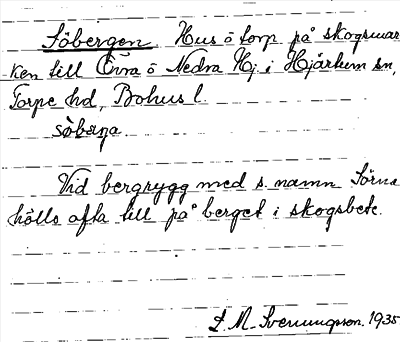 Söbergen. Hus ö torp på skogsmar
ken till Övra ö Nedra Hj. i Hjärtum sn,
Torpe hd, Bohus l.
Vid bergrygg med s. namn
hölls ofta till på berget i skogsbete.
L. M. Svenungsson. 1935